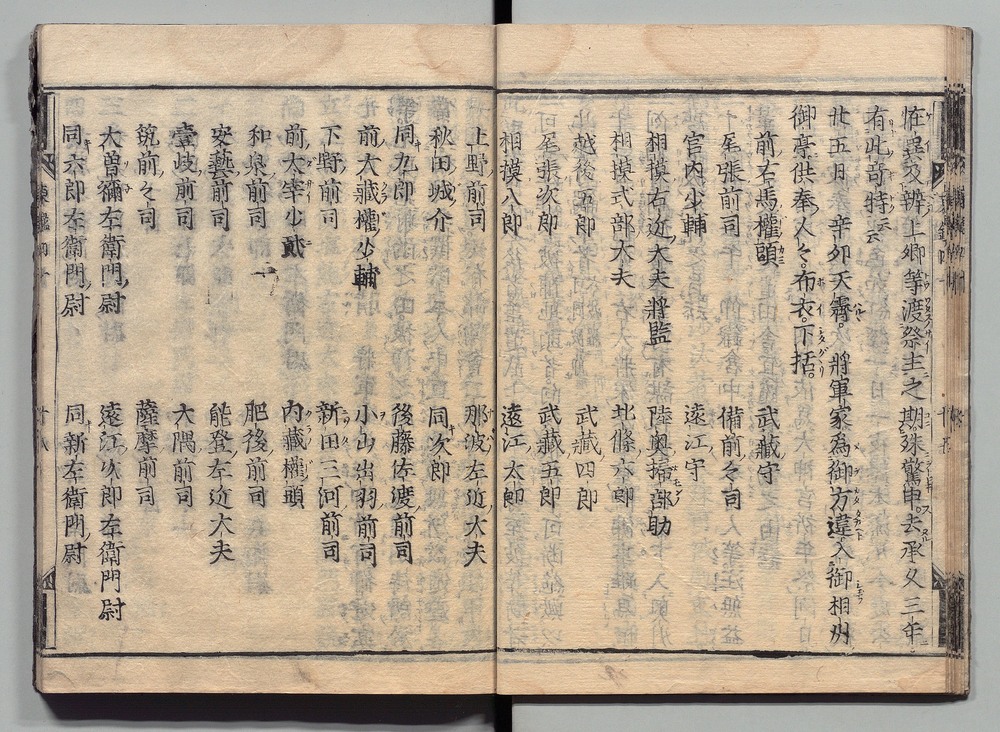 恠異又辨上卿等渡祭主之期殊驚申。去承久三年
有此奇特云云
廿五日 辛卯天霽。將軍家爲御方違入御相州
御亭供奉人々。布衣。下括。
前右馬權頭 武藏守
尾張前司 備前々司
宮内少輔 遠江守
相摸右近大夫將監 陸奥掃部助
相摸式部大夫 北條六郎
越後五郎 武藏四郎
尾張次郎 武藏五郎
相摸八郎 遠江太郎
上野前司 那波左近大夫
秋田城介 同次郎
同九郎 後藤佐渡前司
前大藏權少輔 小山出羽前司
下野前司 新田三河前司
前太宰少貳 内藏權頭
和泉前司 肥後前司
安藝前司 能登左近大夫
壹岐前司 大隅前司
筑前々司 薩摩前司
大曽禰左衛門尉 遠江次郎左衛門尉
同六郎左衛門尉 同新左衛門尉